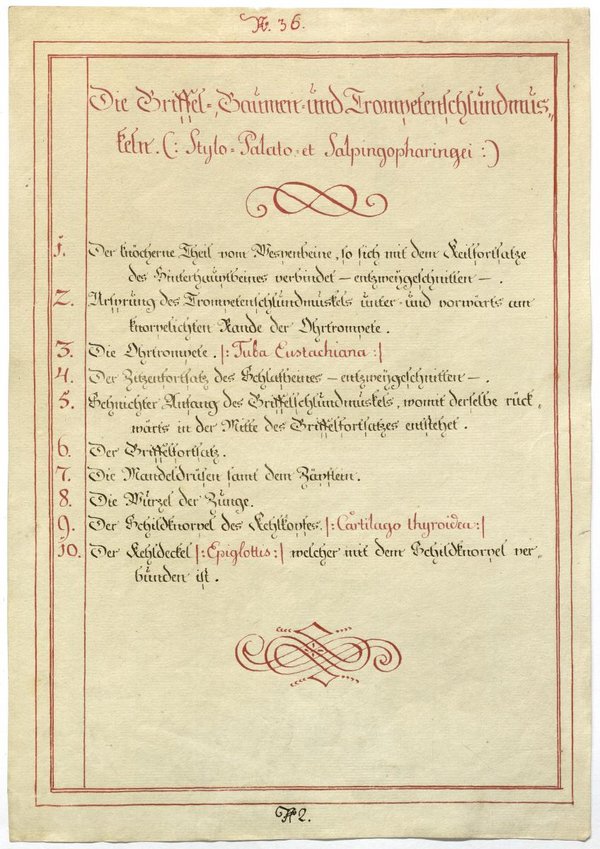 N. 36.
Die Griffel-, Gaumen- und Trompetenschlundmus-
keln. (: Stylo- Palato- et Salpingopharingei :)
1. Der knöcherne Theil vom Wespenbeine, so sich mit dem Keilfortsatze
des Hinterhauptbeines verbindet — entzweygeschnitten —.
2. Ursprung des Trompetenschlundmuskels unter- und vorwärts am
knorpelichten Rande der Ohrtrompete.
3. Die Ohrtrompete. |: Tuba Eustachiana :|
4. Der Zitzenfortsatz des Schlafbeines — entzweygeschnitten —.
5. Sehnichter Anfang des Griffelschlundmuskels, womit derselbe rück-
wärts in der Mitte des Griffelfortsatzes entstehet.
6. Der Griffelfortsatz.
7. Die Mandeldrüsen samt dem Zäpflein.
8. Die Würzel der Zunge.
9. Der Schildknorpel des Kehlkopfes. |: Cartilago thyroidea :|
10. Der Kehldeckel |: Epiglottis :| welcher mit dem Schildknorpel ver-
bunden ist.
N 2.